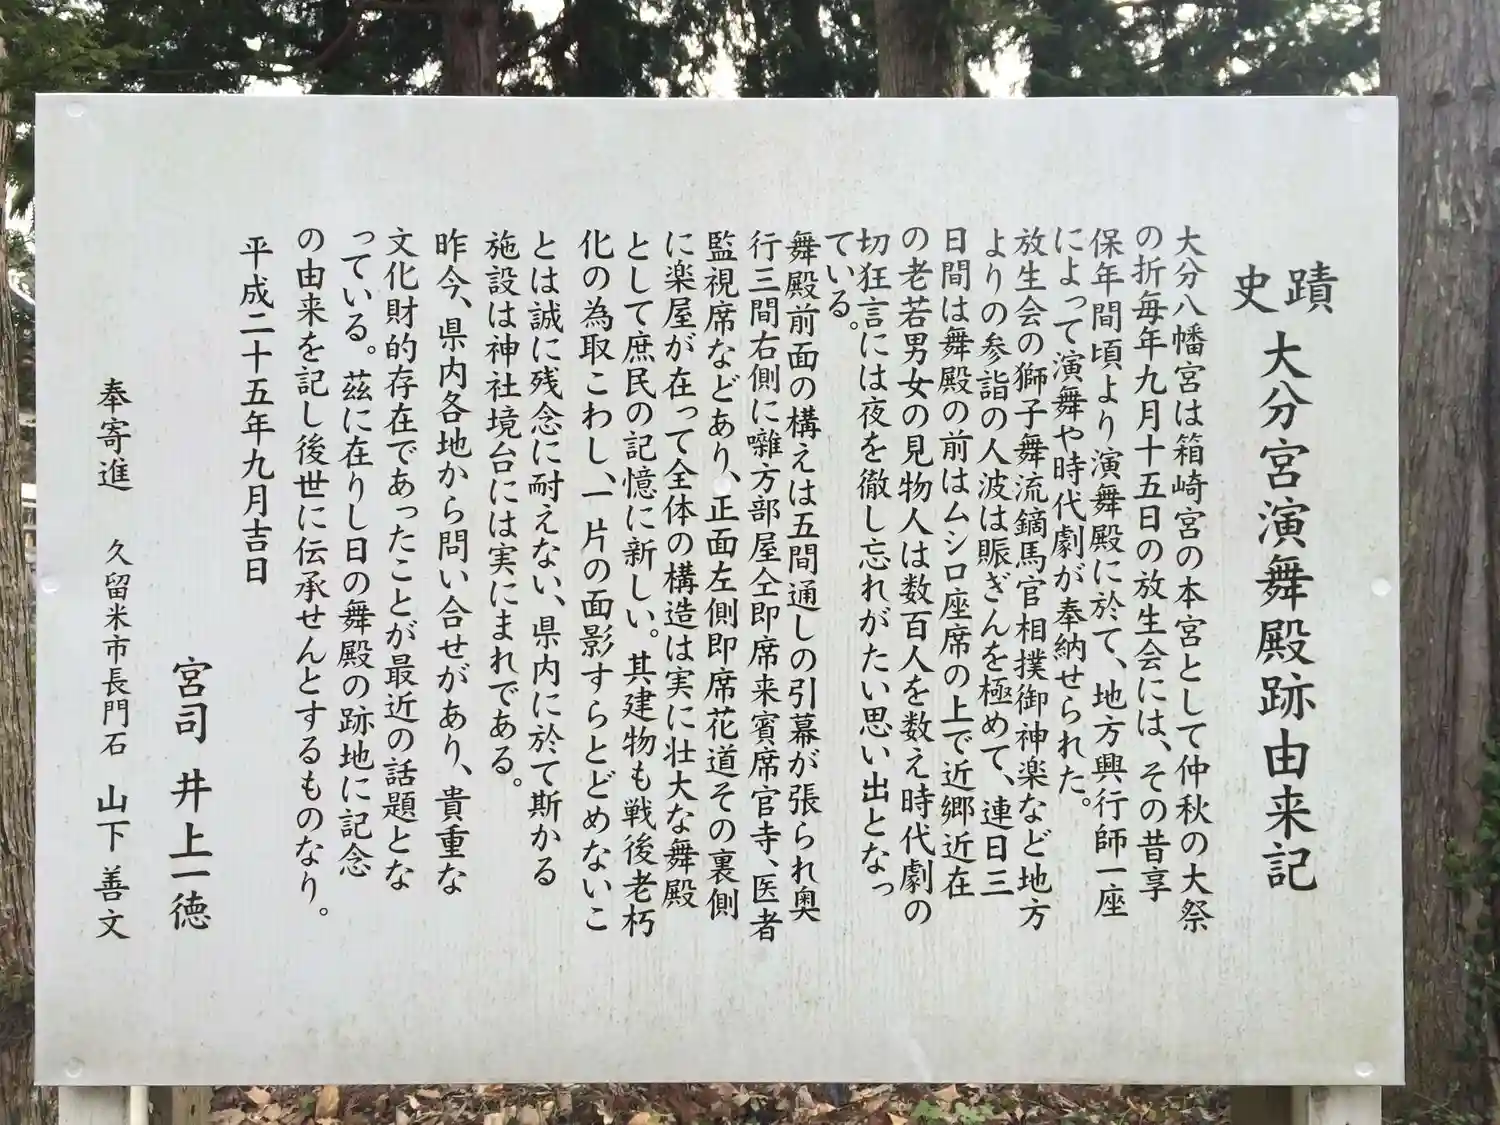 史蹟 大分宮演舞殿跡由来記
大分八幡宮は箱崎宮の本宮として仲秋の大祭
の折毎年九月十五日の放生会には、その昔享
保年間頃より演舞殿に於て、地方興行師一座
によって演舞や時代劇が奉納せられた。
放生会の獅子舞流鏑馬官相撲御神楽など地方
よりの参詣の人波は賑ぎんを極めて、連日三
日間は舞殿の前はムシロ座席の上で近郷近在
の老若男女の見物人は数百人を数え時代劇の
切狂言には夜を徹し忘れがたい思い出となっ
ている。
舞殿前面の構えは五間通しの引幕が張られ奥
行三間右側に囃方部屋仝即席来賓席官寺、医者
監視席などあり、正面左側即席花道その裏側
に楽屋が在って全体の構造は実に壮大な舞殿
として庶民の記憶に新しい。其建物も戦後老朽
化の為取こわし、一片の面影すらとどめないこ
とは誠に残念に耐えない、県内に於て斯かる
施設は神社境台には実にまれである。
昨今、県内各地から問い合せがあり、貴重な
文化財的存在であったことが最近の話題とな
っている。茲に在りし日の舞殿の跡地に記念
の由来を記し後世に伝承せんとするものなり。
平成二十五年九月吉日
宮司 井上一徳
奉寄進 久留米市長門石 山下善文